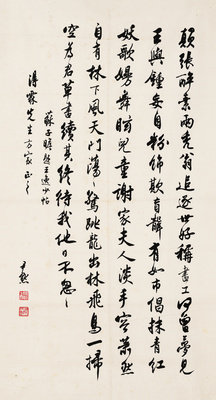 顛張醉素兩禿翁追逐世好稱書工何曾夢見
王與鍾妄自粉飾欺盲聾有如市倡抹青紅
妖歌嫚舞眩兒童謝家夫人淡丰容蕭然
自有林下風天門蕩〻驚跳龍出林飛鳥一掃
空為君草書續其終待我他日不忽〻
蘇子瞻題王逸少帖
先生方家正之
尹默